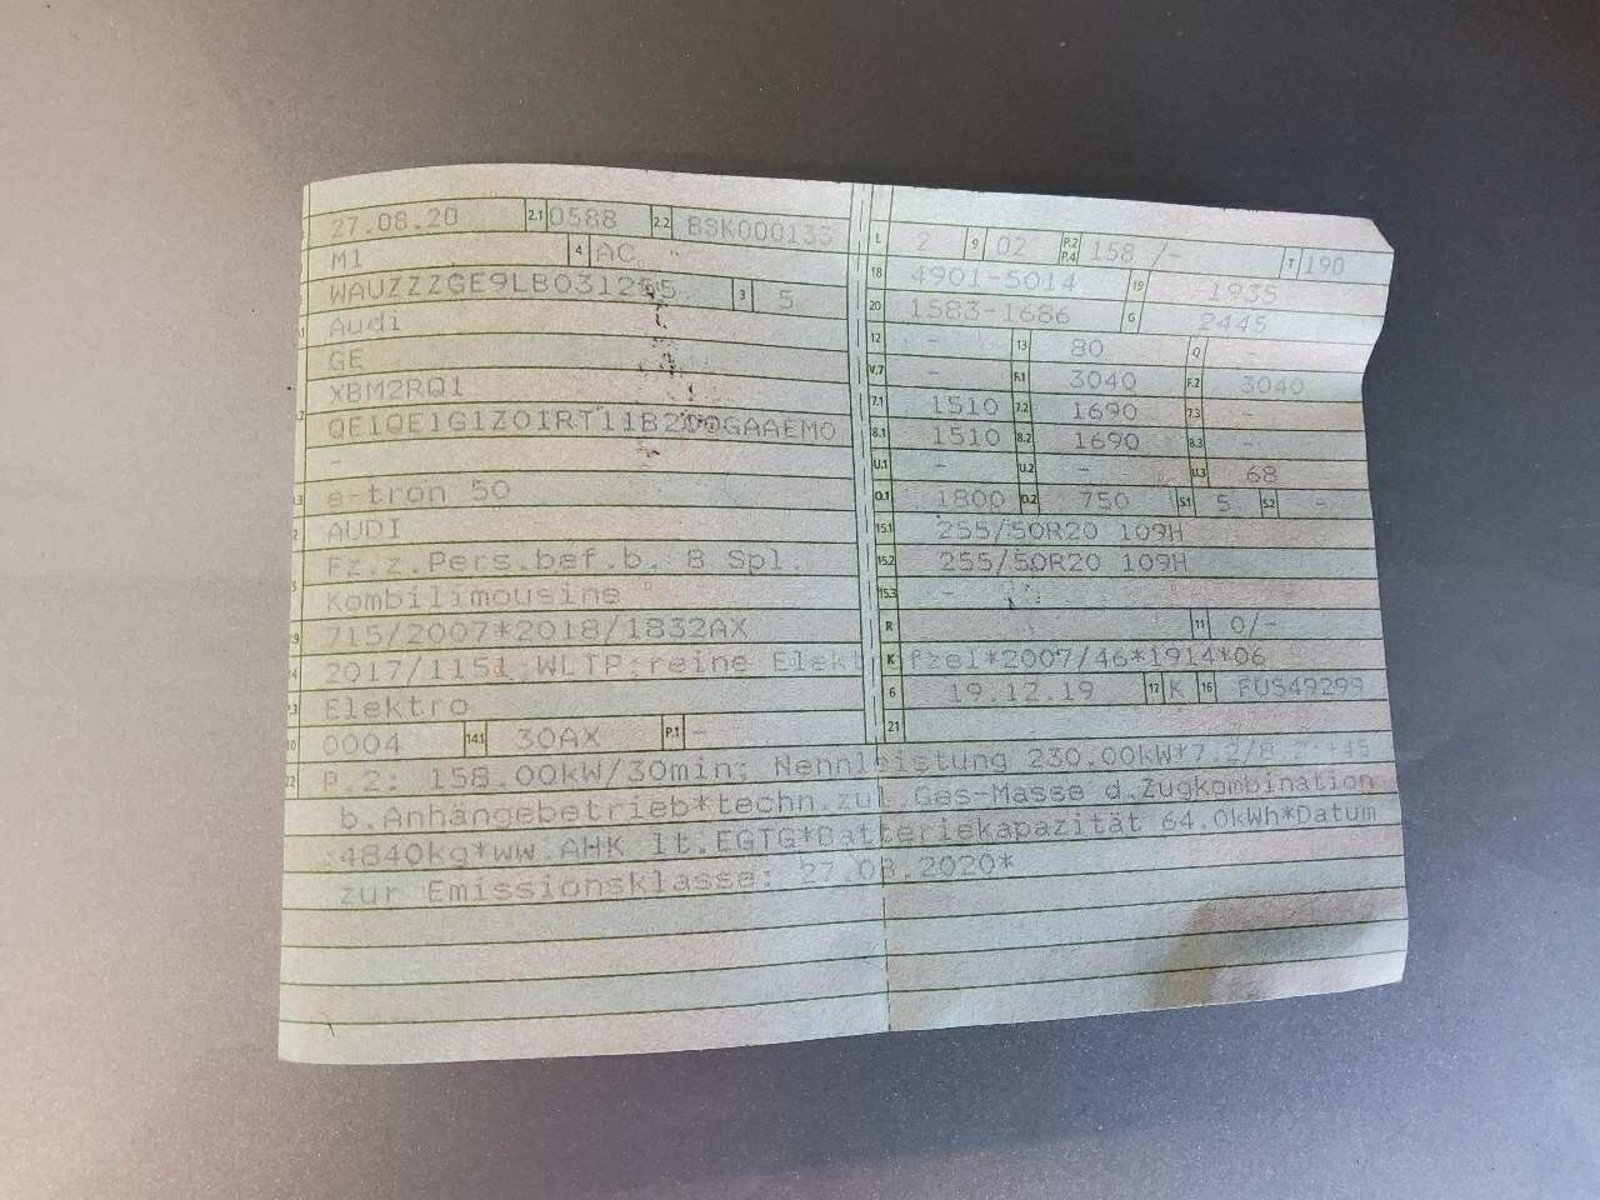 27.08.20 2.1 0588 2.2 BSK000133
M1 4 AC
3 5
Audi
GE
XBM2RQ1
-
e-tron 50
AUDI
Fz.z.Pers.bef.b. 8 Spl.
Kombilimousine
715/2007*2018/1832AX
2017/1151;WLTP;reine Elekt
Elektro
10 0004 14.1 30AX P.1 -
L 2 9 02 P.2 P.4 158 /- T 190
18 4901-5014 19 1935
20 1583-1686 G 2445
12 - 13 80 Q -
V.7 - F.1 3040 F.2 3040
7.1 1510 7.2 1690 7.3 -
8.1 1510 8.2 1690 8.3 -
U.1 - U.2 - U.3 68
O.1 1800 O.2 750 S.1 5 S.2 -
15.1 255/50R20 109H
15.2 255/50R20 109H
15.3 -
R 11 0/-
K *2007/46*1914*06
6 19.12.19 17 K 16 FUS49299
21
22 P.2: 158.00kW/30min; Nennleistung 230.00kW*7.2/8.2:+45
b.Anhängebetrieb*techn.zul.Ges-Masse d.Zugkombination
:4840kg*ww.AHK lt.EGTG*Batteriekapazität 64.0kWh*Datum
zur Emissionsklasse: 27.08.2020*